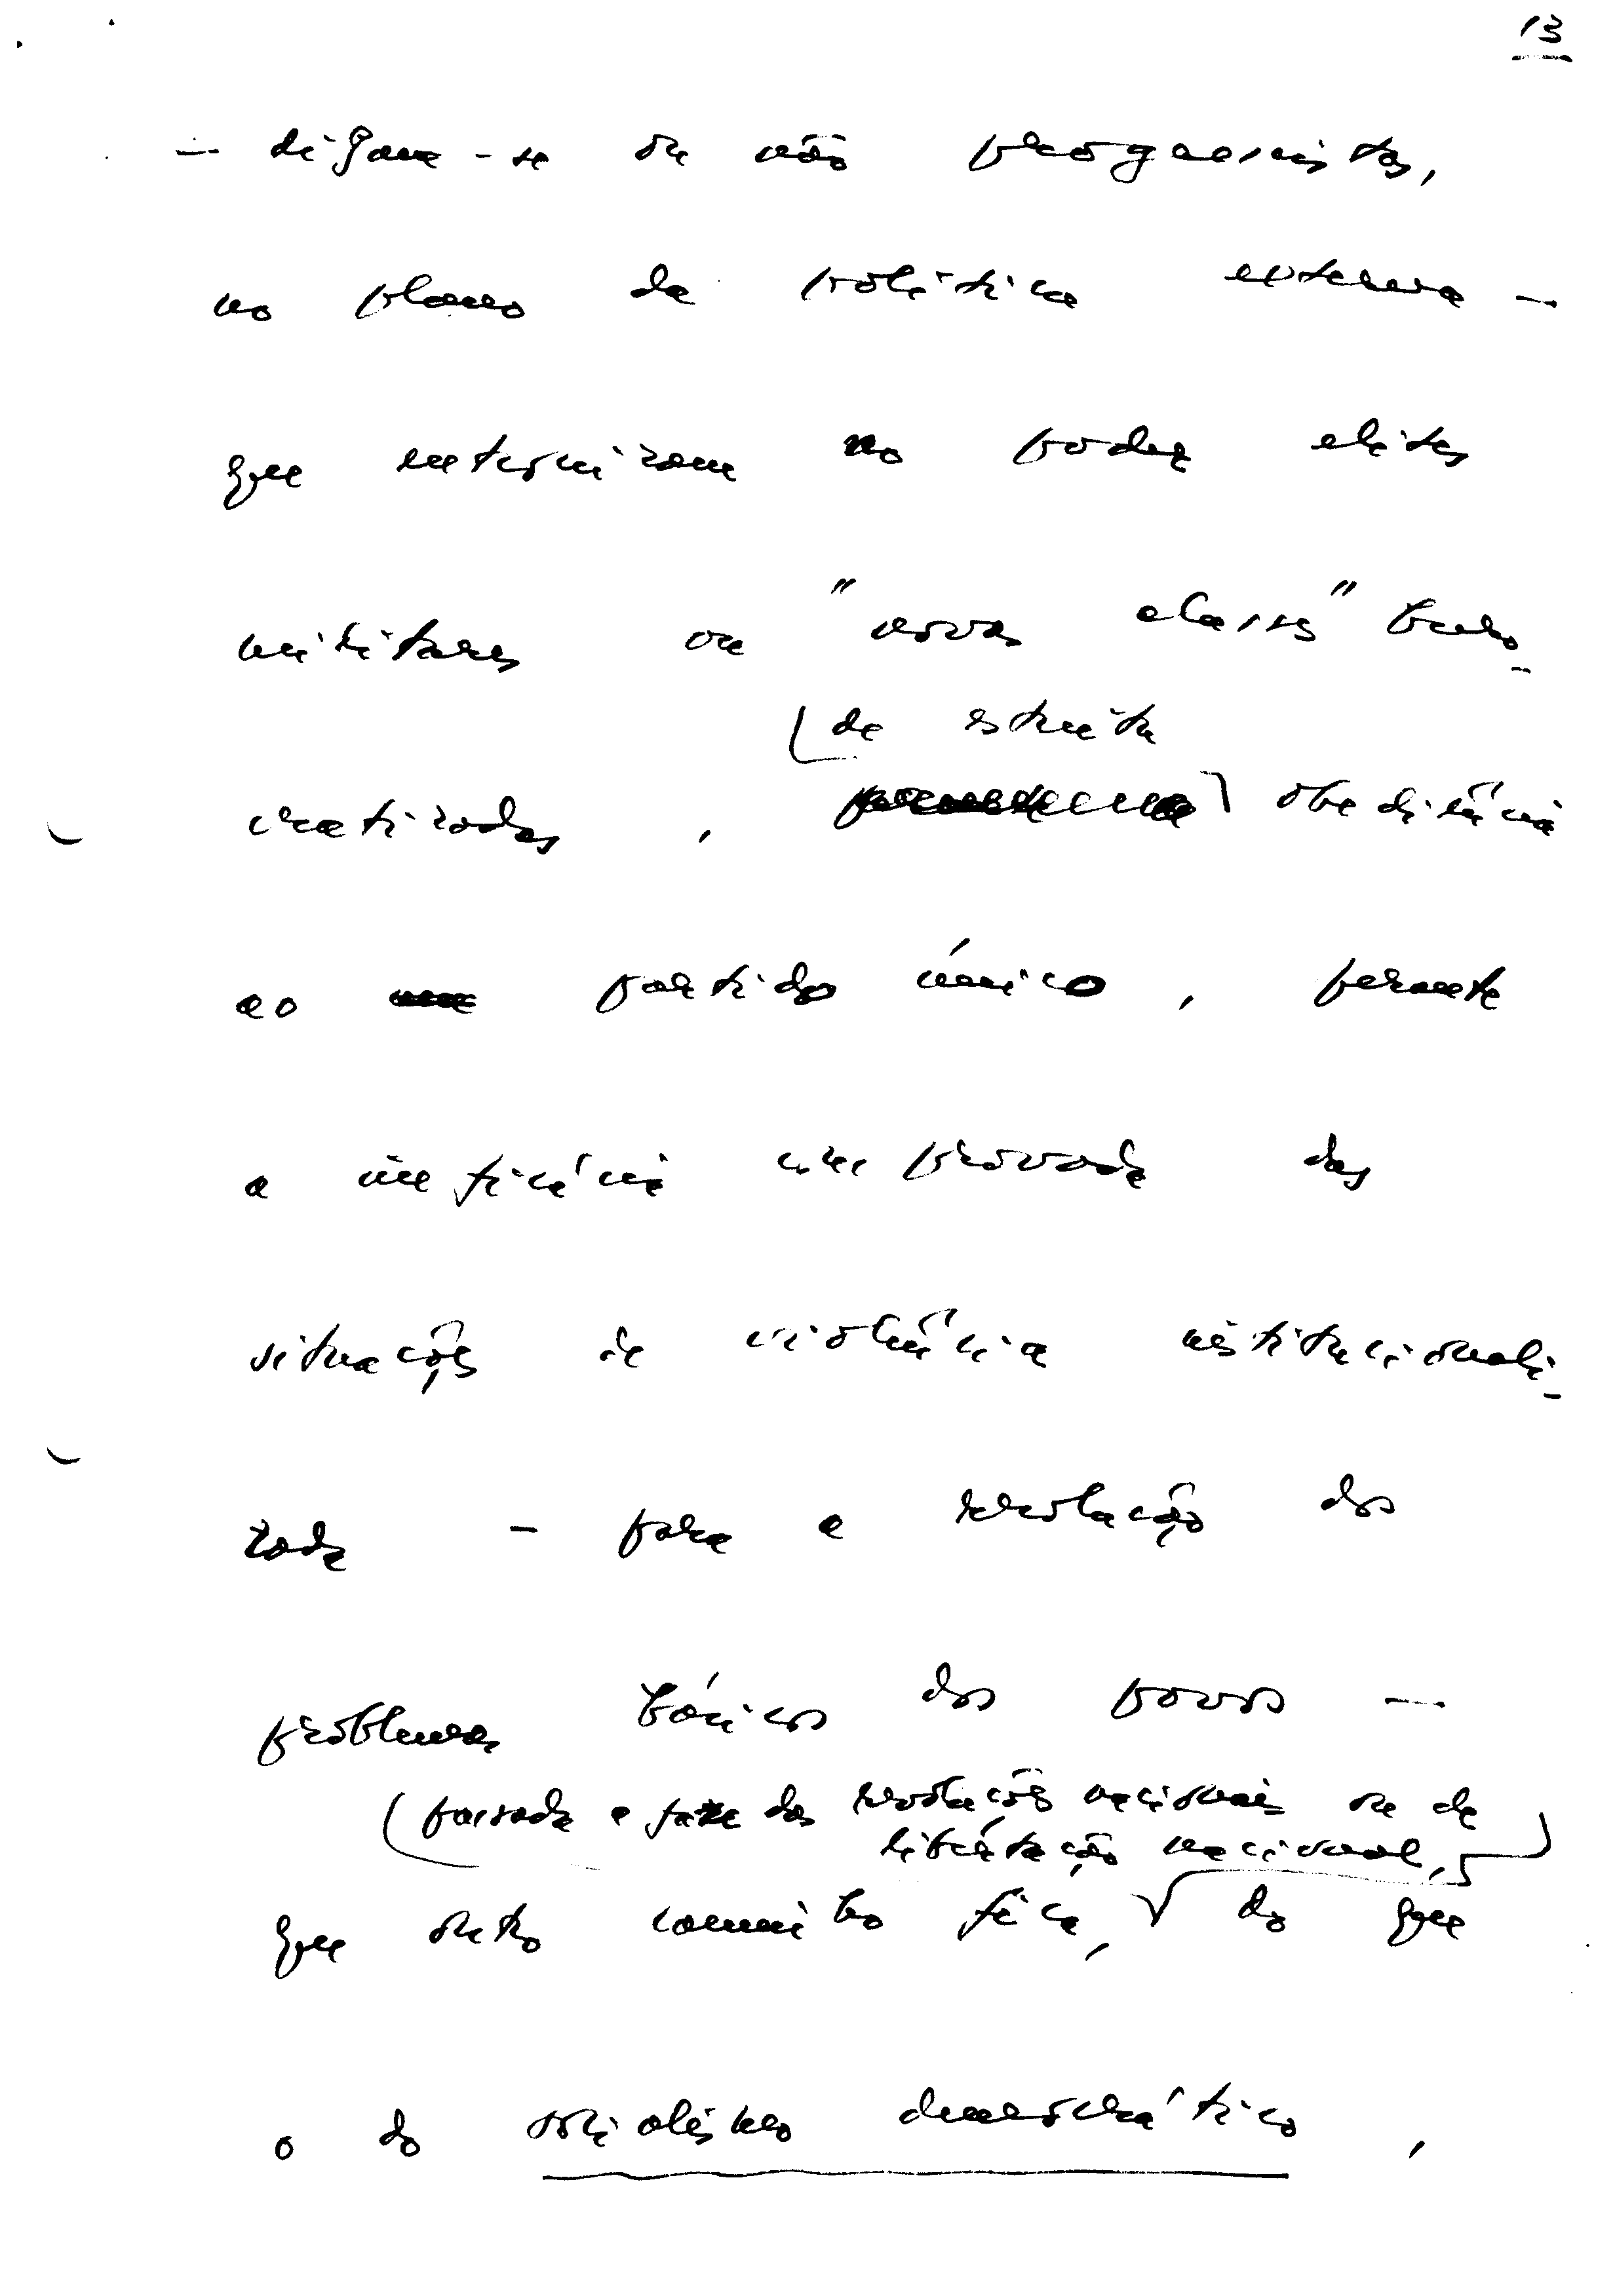 13
— digam-se ou não progressistas,
no plano da política externa —
que entronizam no poder elites
militares ou "novas classes" buro-
de estrita
cratizadas, obediência
ao partido único, perante
a ineficácia comprovada das
situações de violência institucionali-
zada — para a resolução dos
problemas básicos dos povos —
passada a fase das revoluções nacionais ou de
libertação nacional,
que outro caminho fica, do que
o do socialismo democrático,